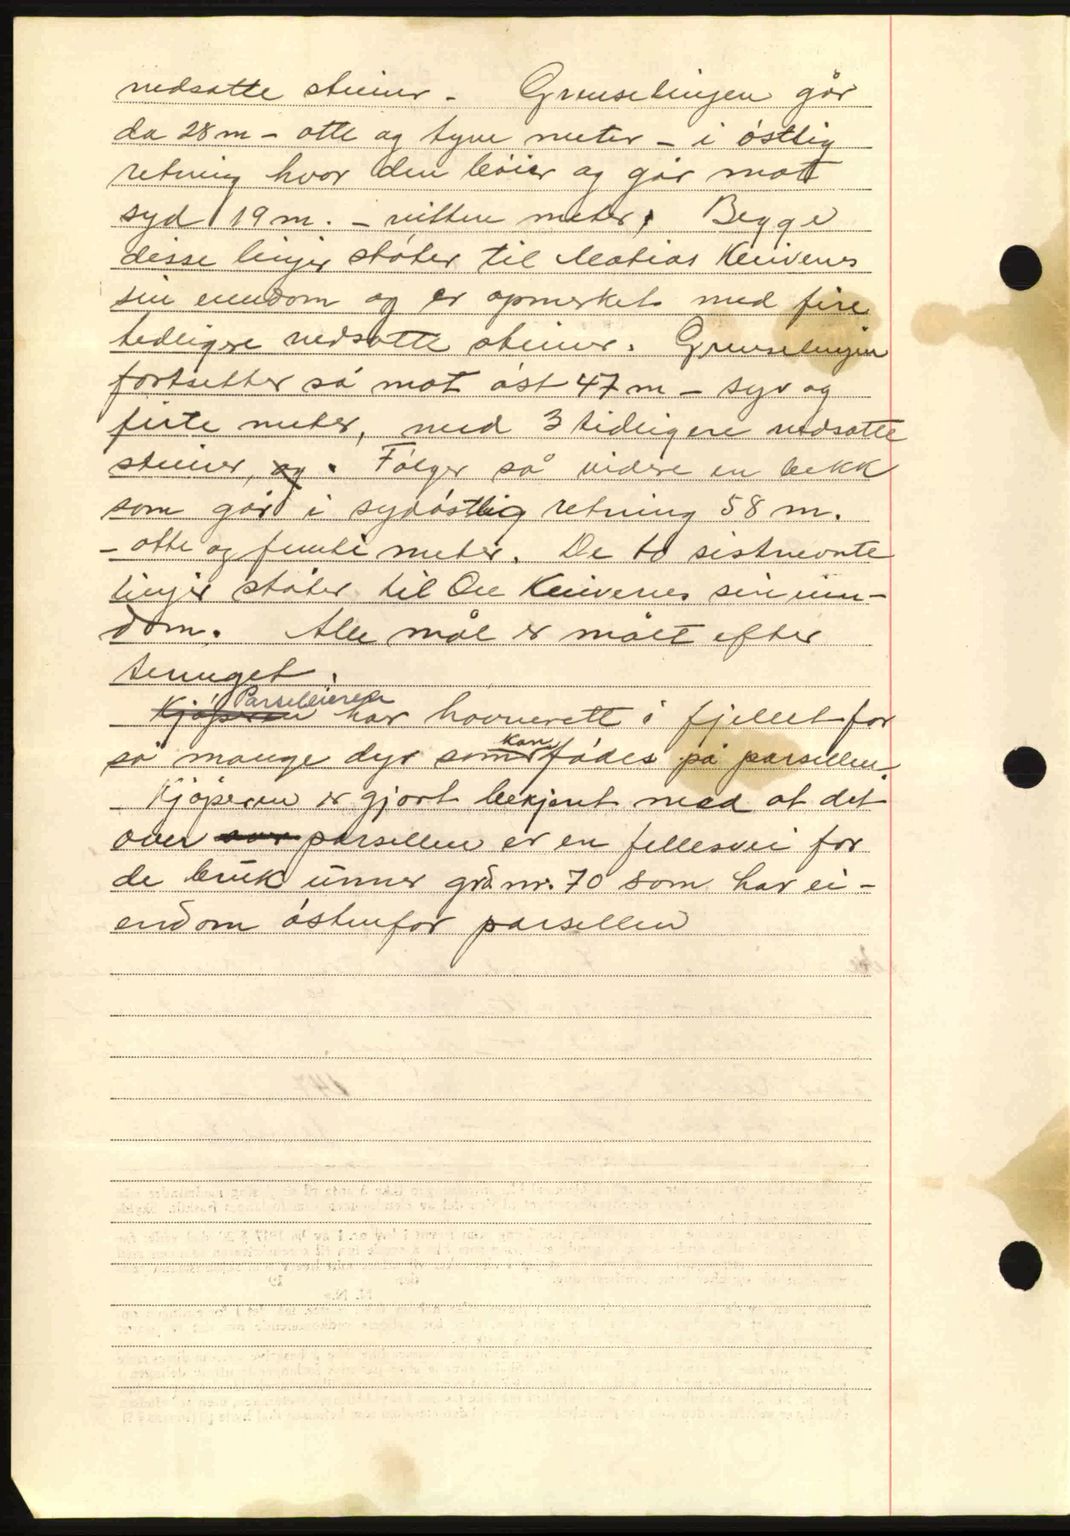 nedsatte steiner. Grenselinjen går
da 28 m – otte og tyve meter – i östlig
retning hvor den böier og går mot
syd 19 m. – nitten meter, Begge
disse linjer stöter til Matias Knivenes
sin eiendom og er opmerket med fire
tidligere nedsatte steiner. Grenselinjen
fortsetter så mot öst 47 m – syv og
firte meter, med 3 tidligere nedsatte
steiner, og . Fölger så videre en bekk
som går i sydöstlig retning 58 m.
– otte og femti meter. De to sistnevnte
linjer stöter til Ole Knivenes sin eien-
dom. Alle mål er målt efter
terenget.
Kjöperen Parseleieren har havnerett i fjellet for
så mange dyr som kan födes på parsellen.
Kjöperen er gjort bekjent med at det
over parsellen er en fellesvei for
de bruk unner grd nr. 70 som har ei-
endom östenfor parsellen